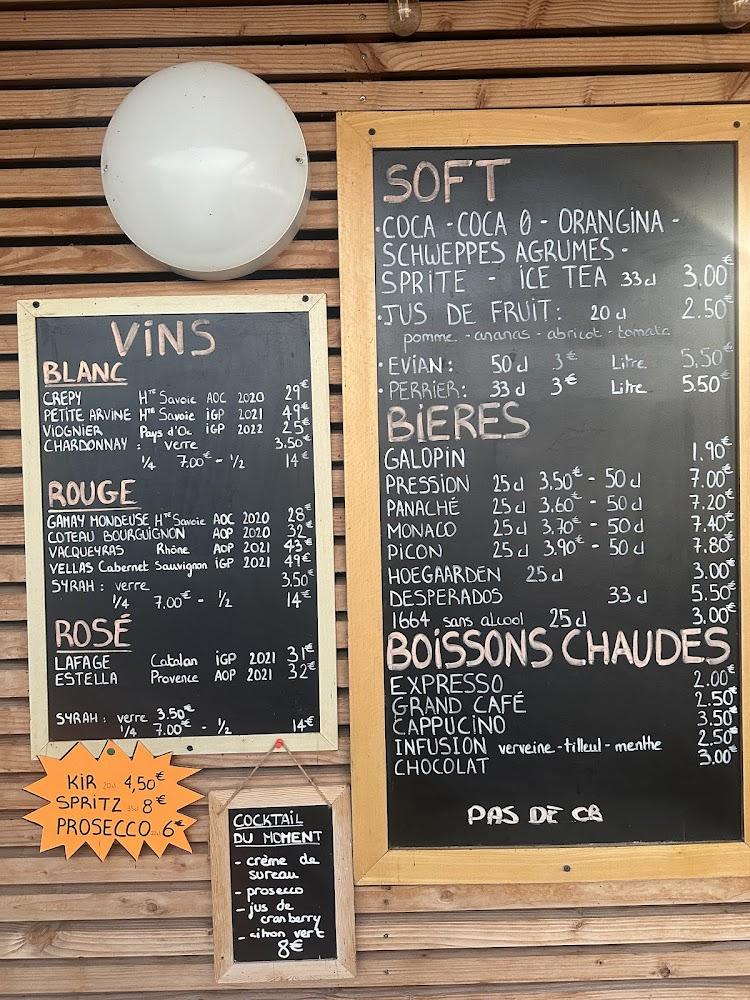 VINS
BLANC
CREPY Hte Savoie AOC 2020 29€
PETITE ARVINE Hte Savoie IGP 2021 49€
VIOGNIER Pays d'Oc IGP 2022 25€
CHARDONNAY : verre 3.50€
1/4 7.00€ - 1/2 14€
ROUGE
GAMAY MONDEUSE Hte Savoie AOC 2020 28€
COTEAU BOURGUIGNON AOP 2020 32€
VACQUEYRAS Rhône AOP 2021 43€
VELLAS Cabernet Sauvignon IGP 2021 49€
SYRAH : verre 3.50€
1/4 7.00€ - 1/2 14€
ROSÉ
LAFAGE Catalan IGP 2021 31€
ESTELLA Provence AOP 2021 32€
SYRAH : verre 3.50€
1/4 7.00€ - 1/2 14€
KIR 4,50€
SPRITZ 8€
PROSECCO 6€
COCKTAIL
DU MOMENT
- crème de
sureau
- prosecco
- jus de
cranberry
- citron vert
8€
SOFT
· COCA - COCA 0 - ORANGINA -
SCHWEPPES AGRUMES -
SPRITE - ICE TEA 33cl 3.00€
· JUS DE FRUIT : 20cl 2.50€
pomme - ananas - abricot - tomate
· EVIAN : 50cl 3€ Litre 5,50€
· PERRIER : 33cl 3€ Litre 5.50€
BIERES
GALOPIN 1.90€
PRESSION 25cl 3,50€ - 50cl 7.00€
PANACHÉ 25cl 3.60€ - 50cl 7.20€
MONACO 25cl 3,70€ - 50cl 7.40€
PICON 25cl 3.90€ - 50cl 7.80€
HOEGAARDEN 25cl 3.00€
DESPERADOS 33cl 5.50€
1664 sans alcool 25cl 3.00€
BOISSONS CHAUDES
EXPRESSO 2.00€
GRAND CAFÉ 2.50€
CAPPUCINO 3.50€
INFUSION verveine - tilleul - menthe 2.50€
CHOCOLAT 3.00€
PAS DE CB